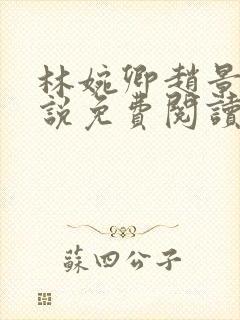 林婉卿趙景
說免費閱讀
蘇四公子